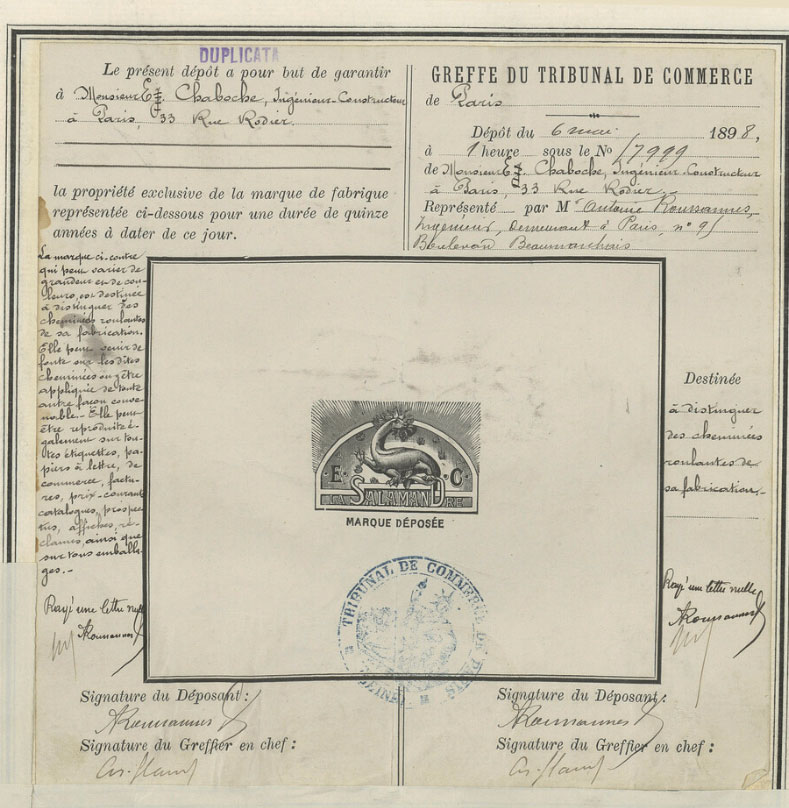 DUPLICATA
Le présent dépôt a pour but de garantir
à Monsieur E. Chaboche, Ingénieur-Constructeur
à Paris, 33 Rue Rodier.
la propriété exclusive de la marque de fabrique
représentée ci-dessous pour une durée de quinze
années à dater de ce jour.
GREFFE DU TRIBUNAL DE COMMERCE
de Paris
Dépôt du 6 mai 1898,
à 1 heure sous le No 7999
de Monsieur E. Chaboche, Ingénieur-Constructeur
à Paris, 33 Rue Rodier.
Représenté par M Antoine Roussannes,
Ingénieur, demeurant à Paris, n° 91
Boulevard Beaumarchais
La marque ci-contre
qui peut varier de
grandeur et de cou-
leurs, est destinée
à distinguer les
cheminées roulantes
de sa fabrication.
Elle peut venir de
fonte sur les dites
cheminées ou être
appliquée de toute
autre façon conve-
nable. - Elle peut
être reproduite é-
galement sur tou-
tes étiquettes, pa-
piers à lettre, de
commerce, factu-
res, prix-courant
catalogues, prospec-
tus, affiches, ré-
clames, ainsi que
sur tous emballa-
ges. -
Rayé une lettre nulle
ARoussannes
E. C.
LA SALAMANDRE
MARQUE DÉPOSÉE
TRIBUNAL DE COMMERCE DE PARIS
(SEINE)
Destinée
à distinguer
des cheminées
roulantes de
sa fabrication. -
Rayé une lettre nulle
ARoussannes
Signature du Déposant :
ARoussannes
Signature du Greffier en chef :
Signature du Déposant :
ARoussannes
Signature du Greffier en chef :